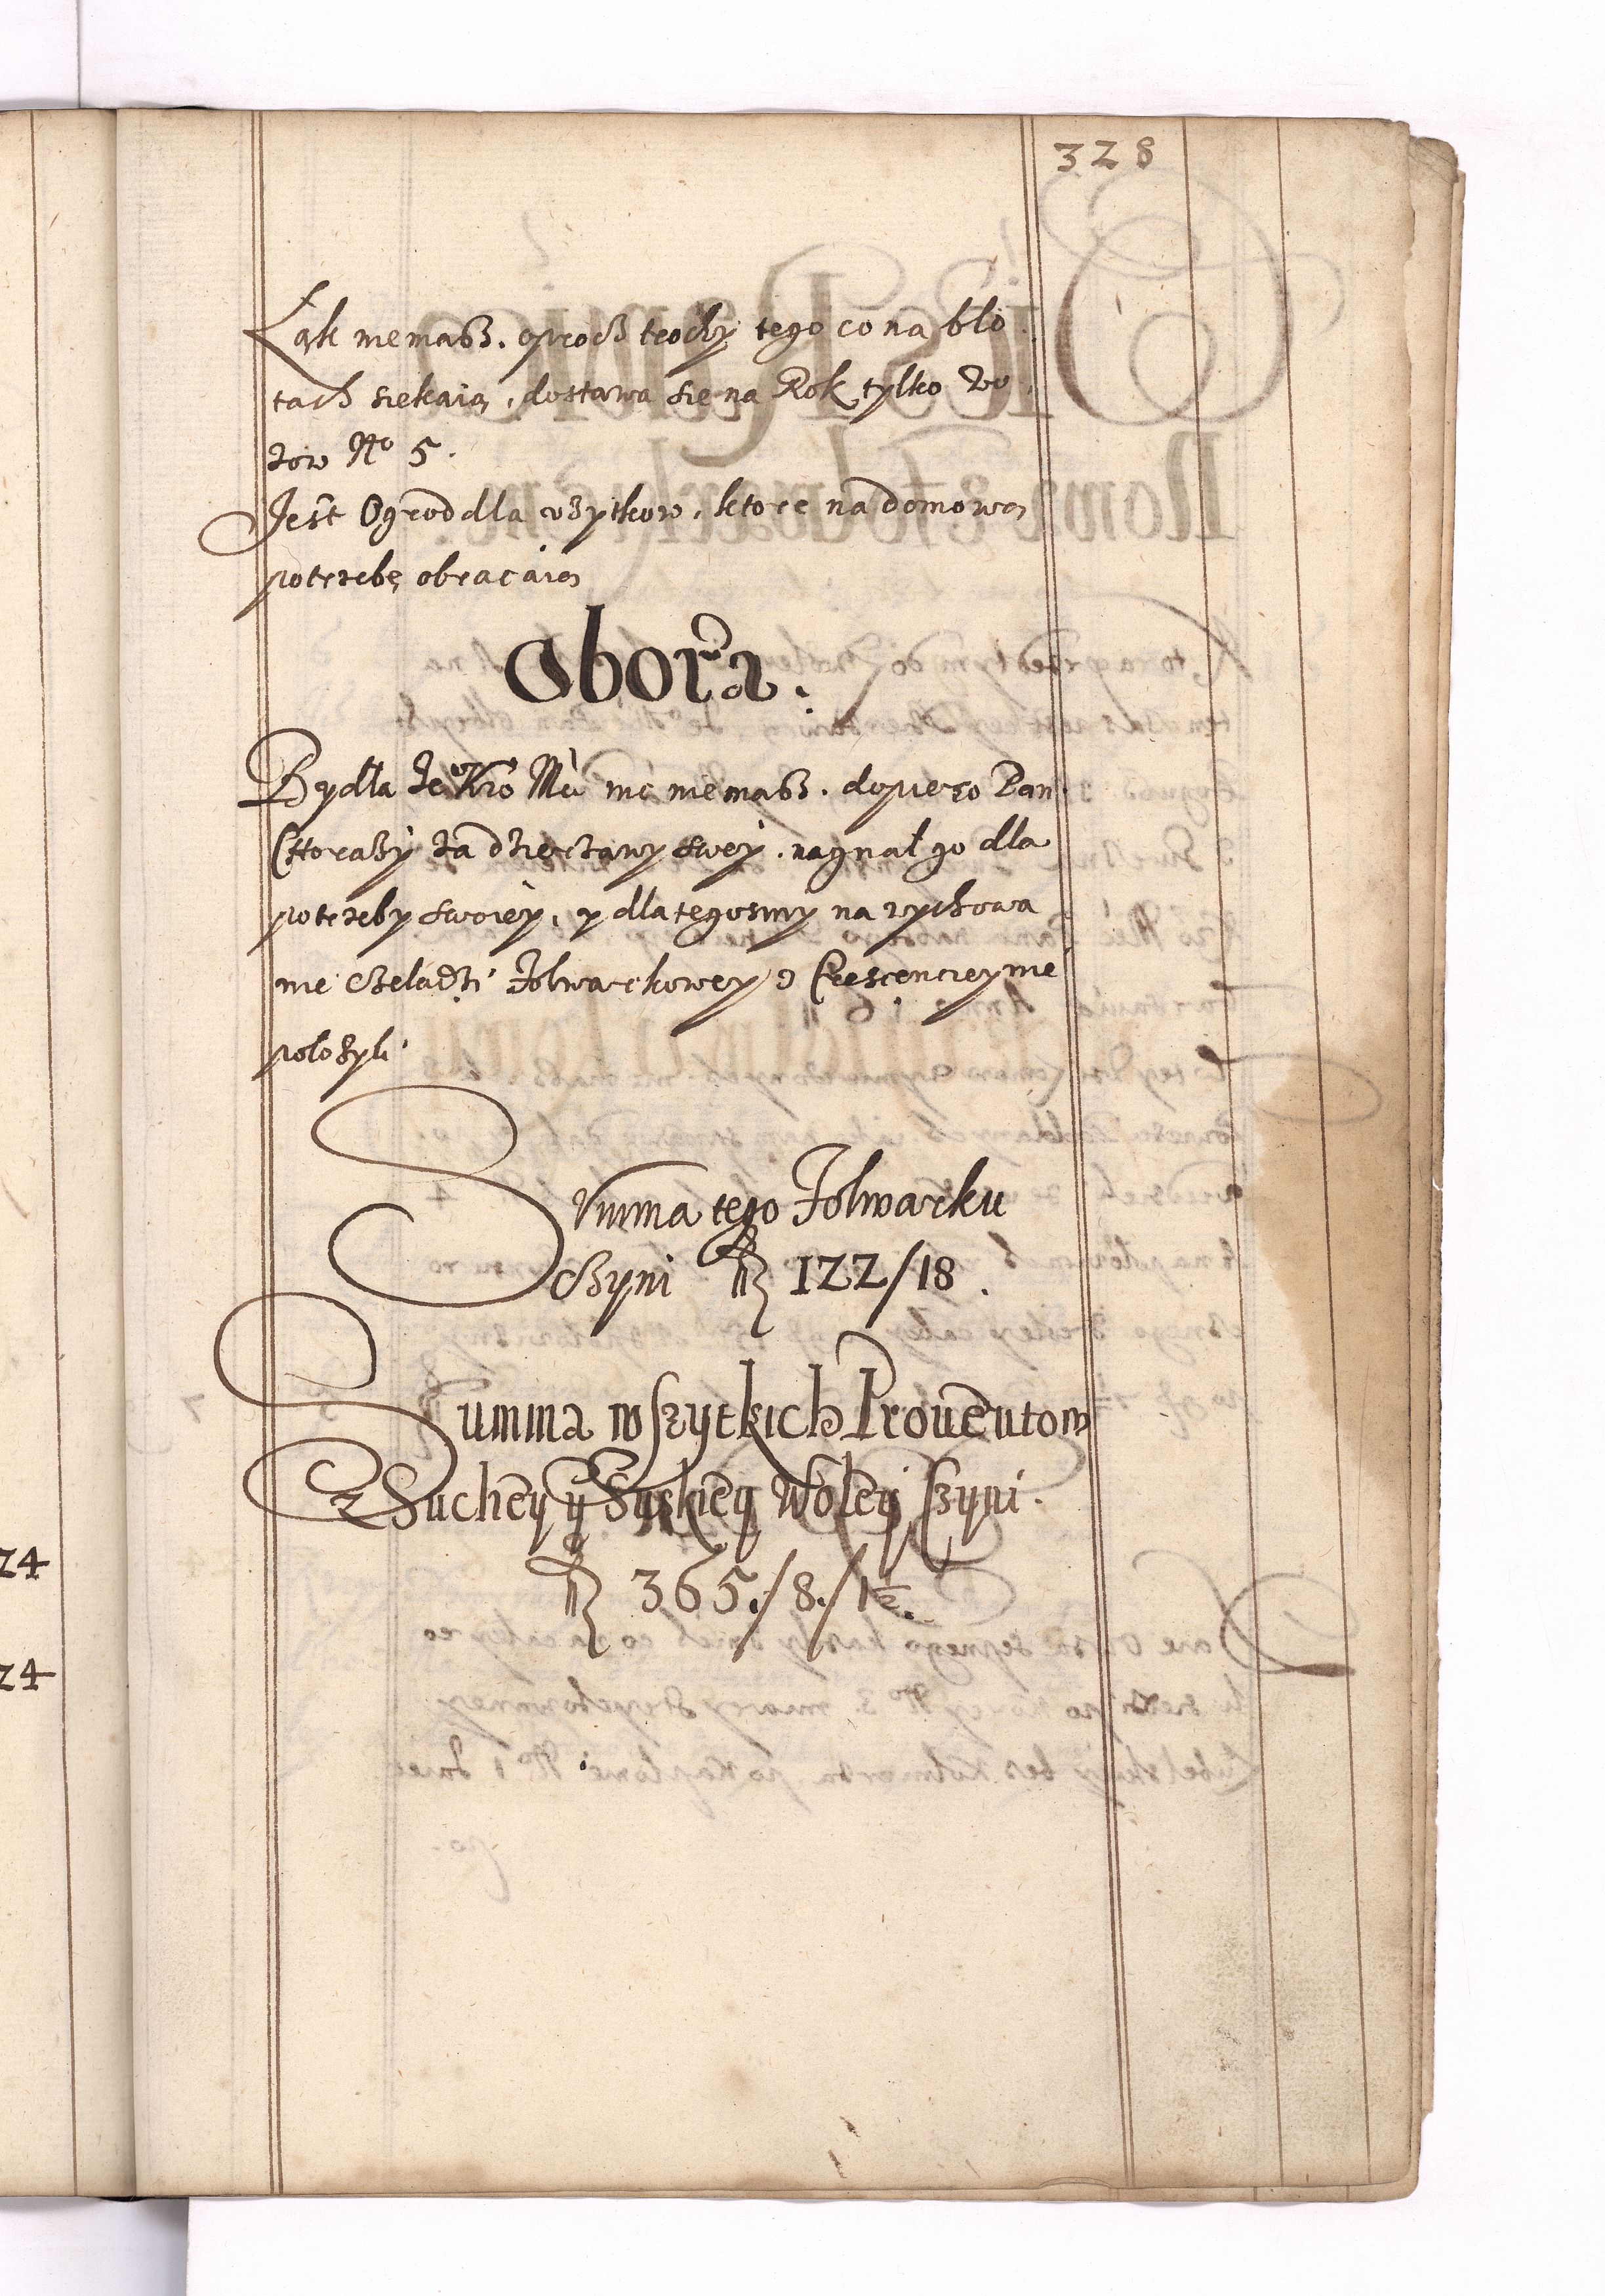 328
Łąk niemasz, oprocz trochy tego co na bło
tach siekaią, dostawa się na Rok tylko wo
zow No 5.
Jest Ogrod dla vżytkow, ktore na domową
potrzebę obracaią
Obora.
Bydła Je Kro Mći nic niemasz. dopiero Pan
Chorąży za dzierżawy swey, nagnał go dla
potrzeby swoiey, y dla tegosmy na wychowa
nie czeladzi Folwarkowey Crescenciey nie
położyli
Summa tego Folwarku
czyni fl 122/18.
Summa wszytkich Prouentow
z Suchey y Syskiey Woley czyni.
fl 365./8./1½.
24
24